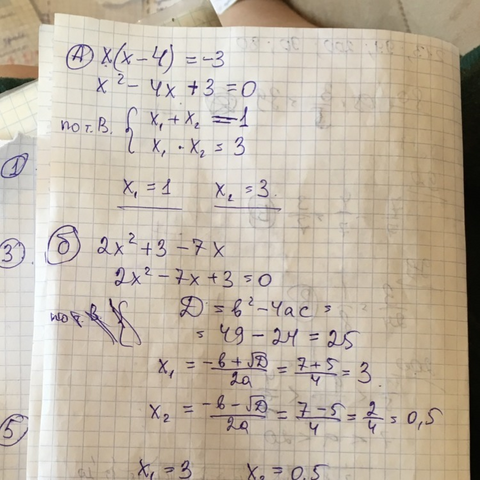 А) x(x-4) = -3
x² - 4x + 3 = 0
по т.В. { x₁ + x₂ = 1
x₁ · x₂ = 3
x₁ = 1 x₂ = 3
1
3
б) 2x² + 3 - 7x
2x² - 7x + 3 = 0
по т. в. { D = b² - 4ac =
= 49 - 24 = 25
x₁ = (-b + √D)/2a = (7+5)/4 = 3
x₂ = (-b - √D)/2a = (7-5)/4 = 2/4 = 0,5
5
x₁ = 3 x₂ = 0,5